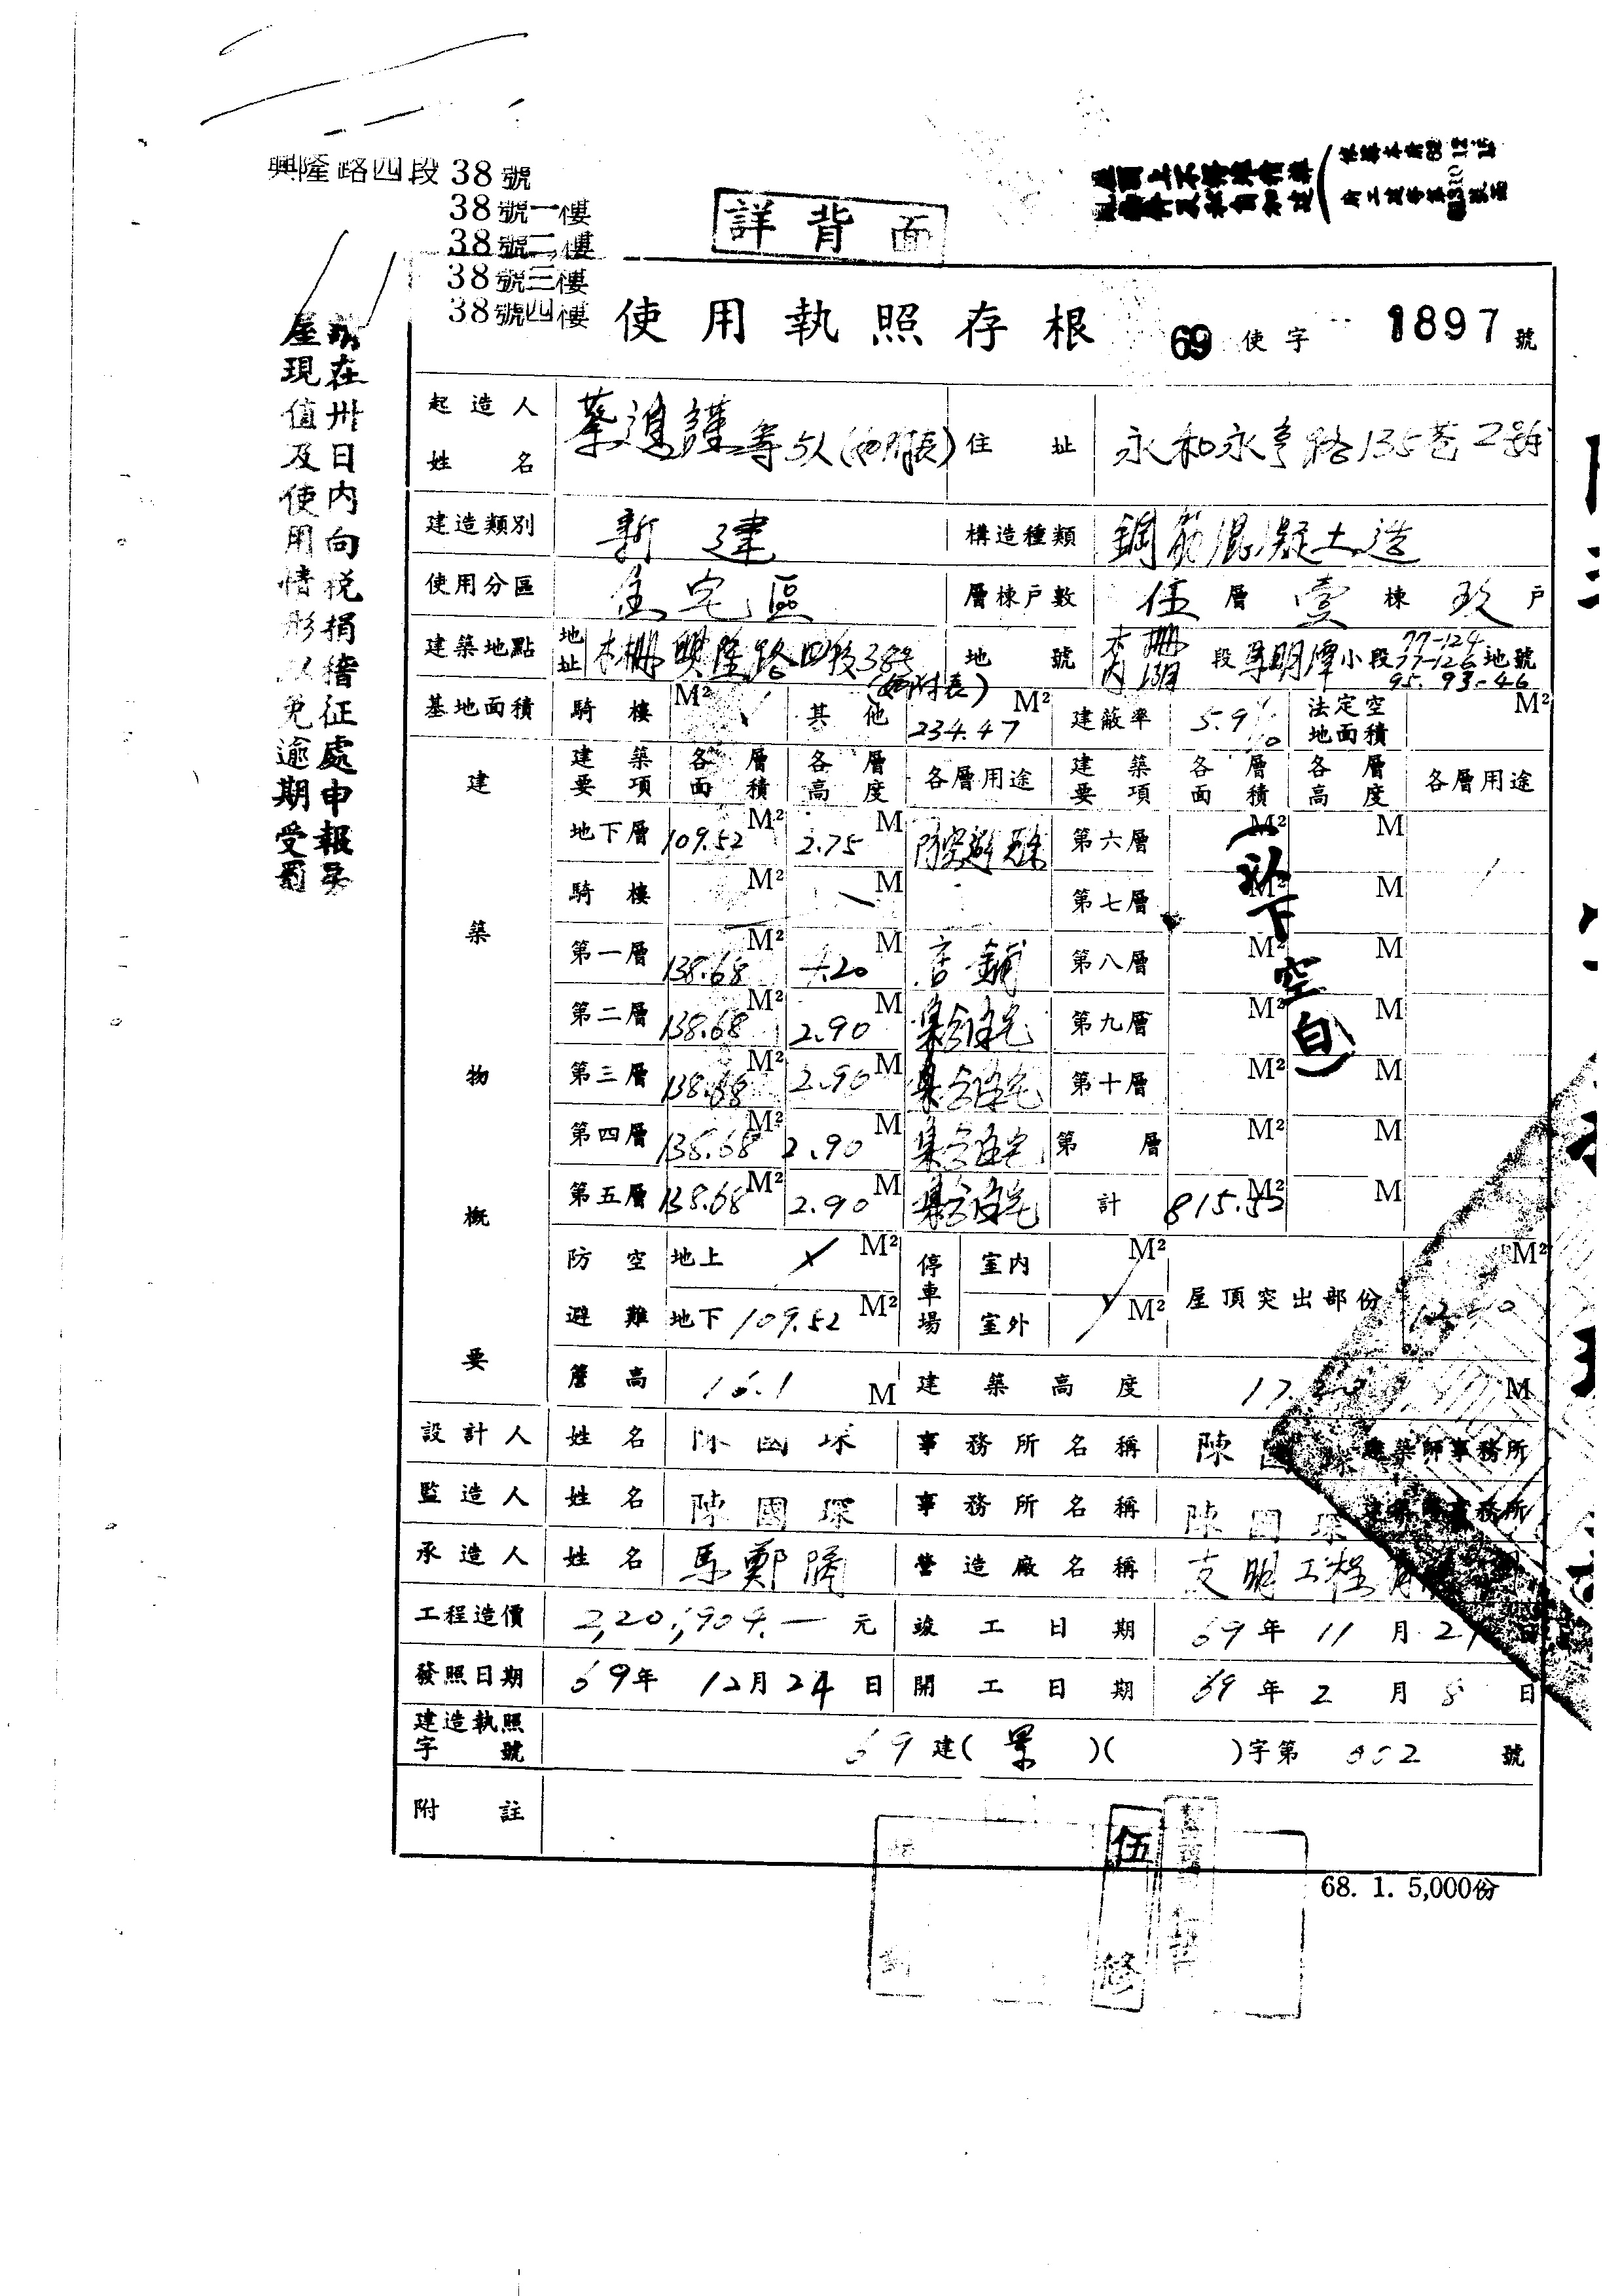 興隆路四段38號
38號一樓
38號二樓
38號三樓
38號四樓
詳背面
請在卅日内向税捐稽征處申報房
屋現值及使用情形以免逾期受罰
使用執照存根 69 使字 1897 號
起造人姓名 蔡進謹等5人(如附表) 住址 永和永亨路135巷2號
建造類別 新建 構造種類 鋼筋混凝土造
使用分區 住宅區 層棟戶數 伍層壹棟玖戶
建築地點 地址 木柵興隆路四段38號(如附表) 地號 木柵内湖段 小段 77-124 77-126 95.93-46 地號
基地面積 騎樓 M² 其他 234.47 M² 建蔽率 5.9% 法定空地面積 M²
建築物概要
建築要項 各層面積 各層高度 各層用途 建築要項 各層面積 各層高度 各層用途
地下層 109.52 M² 2.75 M 防空避難 第六層 M² M
騎樓 M² M 第七層 M² M
第一層 138.68 M² 4.20 M 店鋪 第八層 M² M
第二層 138.68 M² 2.90 M 集合住宅 第九層 M² M
第三層 138.68 M² 2.90 M 集合住宅 第十層 M² M
第四層 138.68 M² 2.90 M 集合住宅 第 層 M² M
第五層 138.68 M² 2.90 M 集合住宅 計 815.52 M² M
(以下空白)
防空避難 地上 M² 停車場 室内 M² 屋頂突出部份 M²
地下 109.52 M² 室外 M²
簷高 16.1 M 建築高度 M
設計人 姓名 陳國琛 事務所名稱 陳國琛建築師事務所
監造人 姓名 陳國琛 事務所名稱 陳國琛建築師事務所
承造人 姓名 馬鄭 營造廠名稱 支明工程
工程造價 元 竣工日期 69年11月 日
發照日期 69年12月24日 開工日期 69年2月8日
建造執照字號 69建( )( )字第 號
附註
伍
修
68. 1. 5,000份